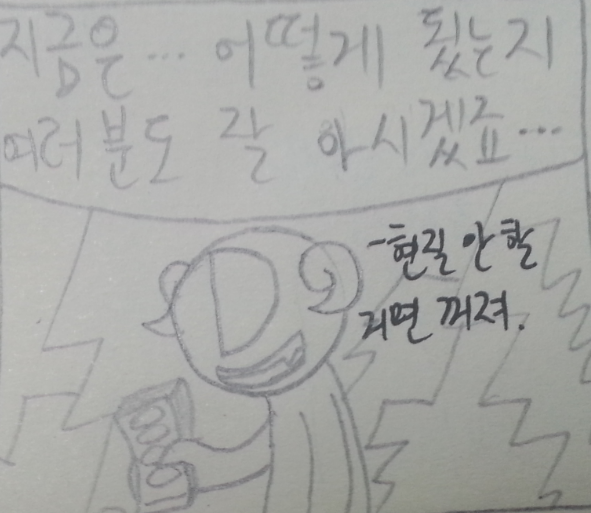 지금은... 어떻게 됬는지
여러분도 잘 아시겠죠...
-현질 안 할
거면 꺼져.